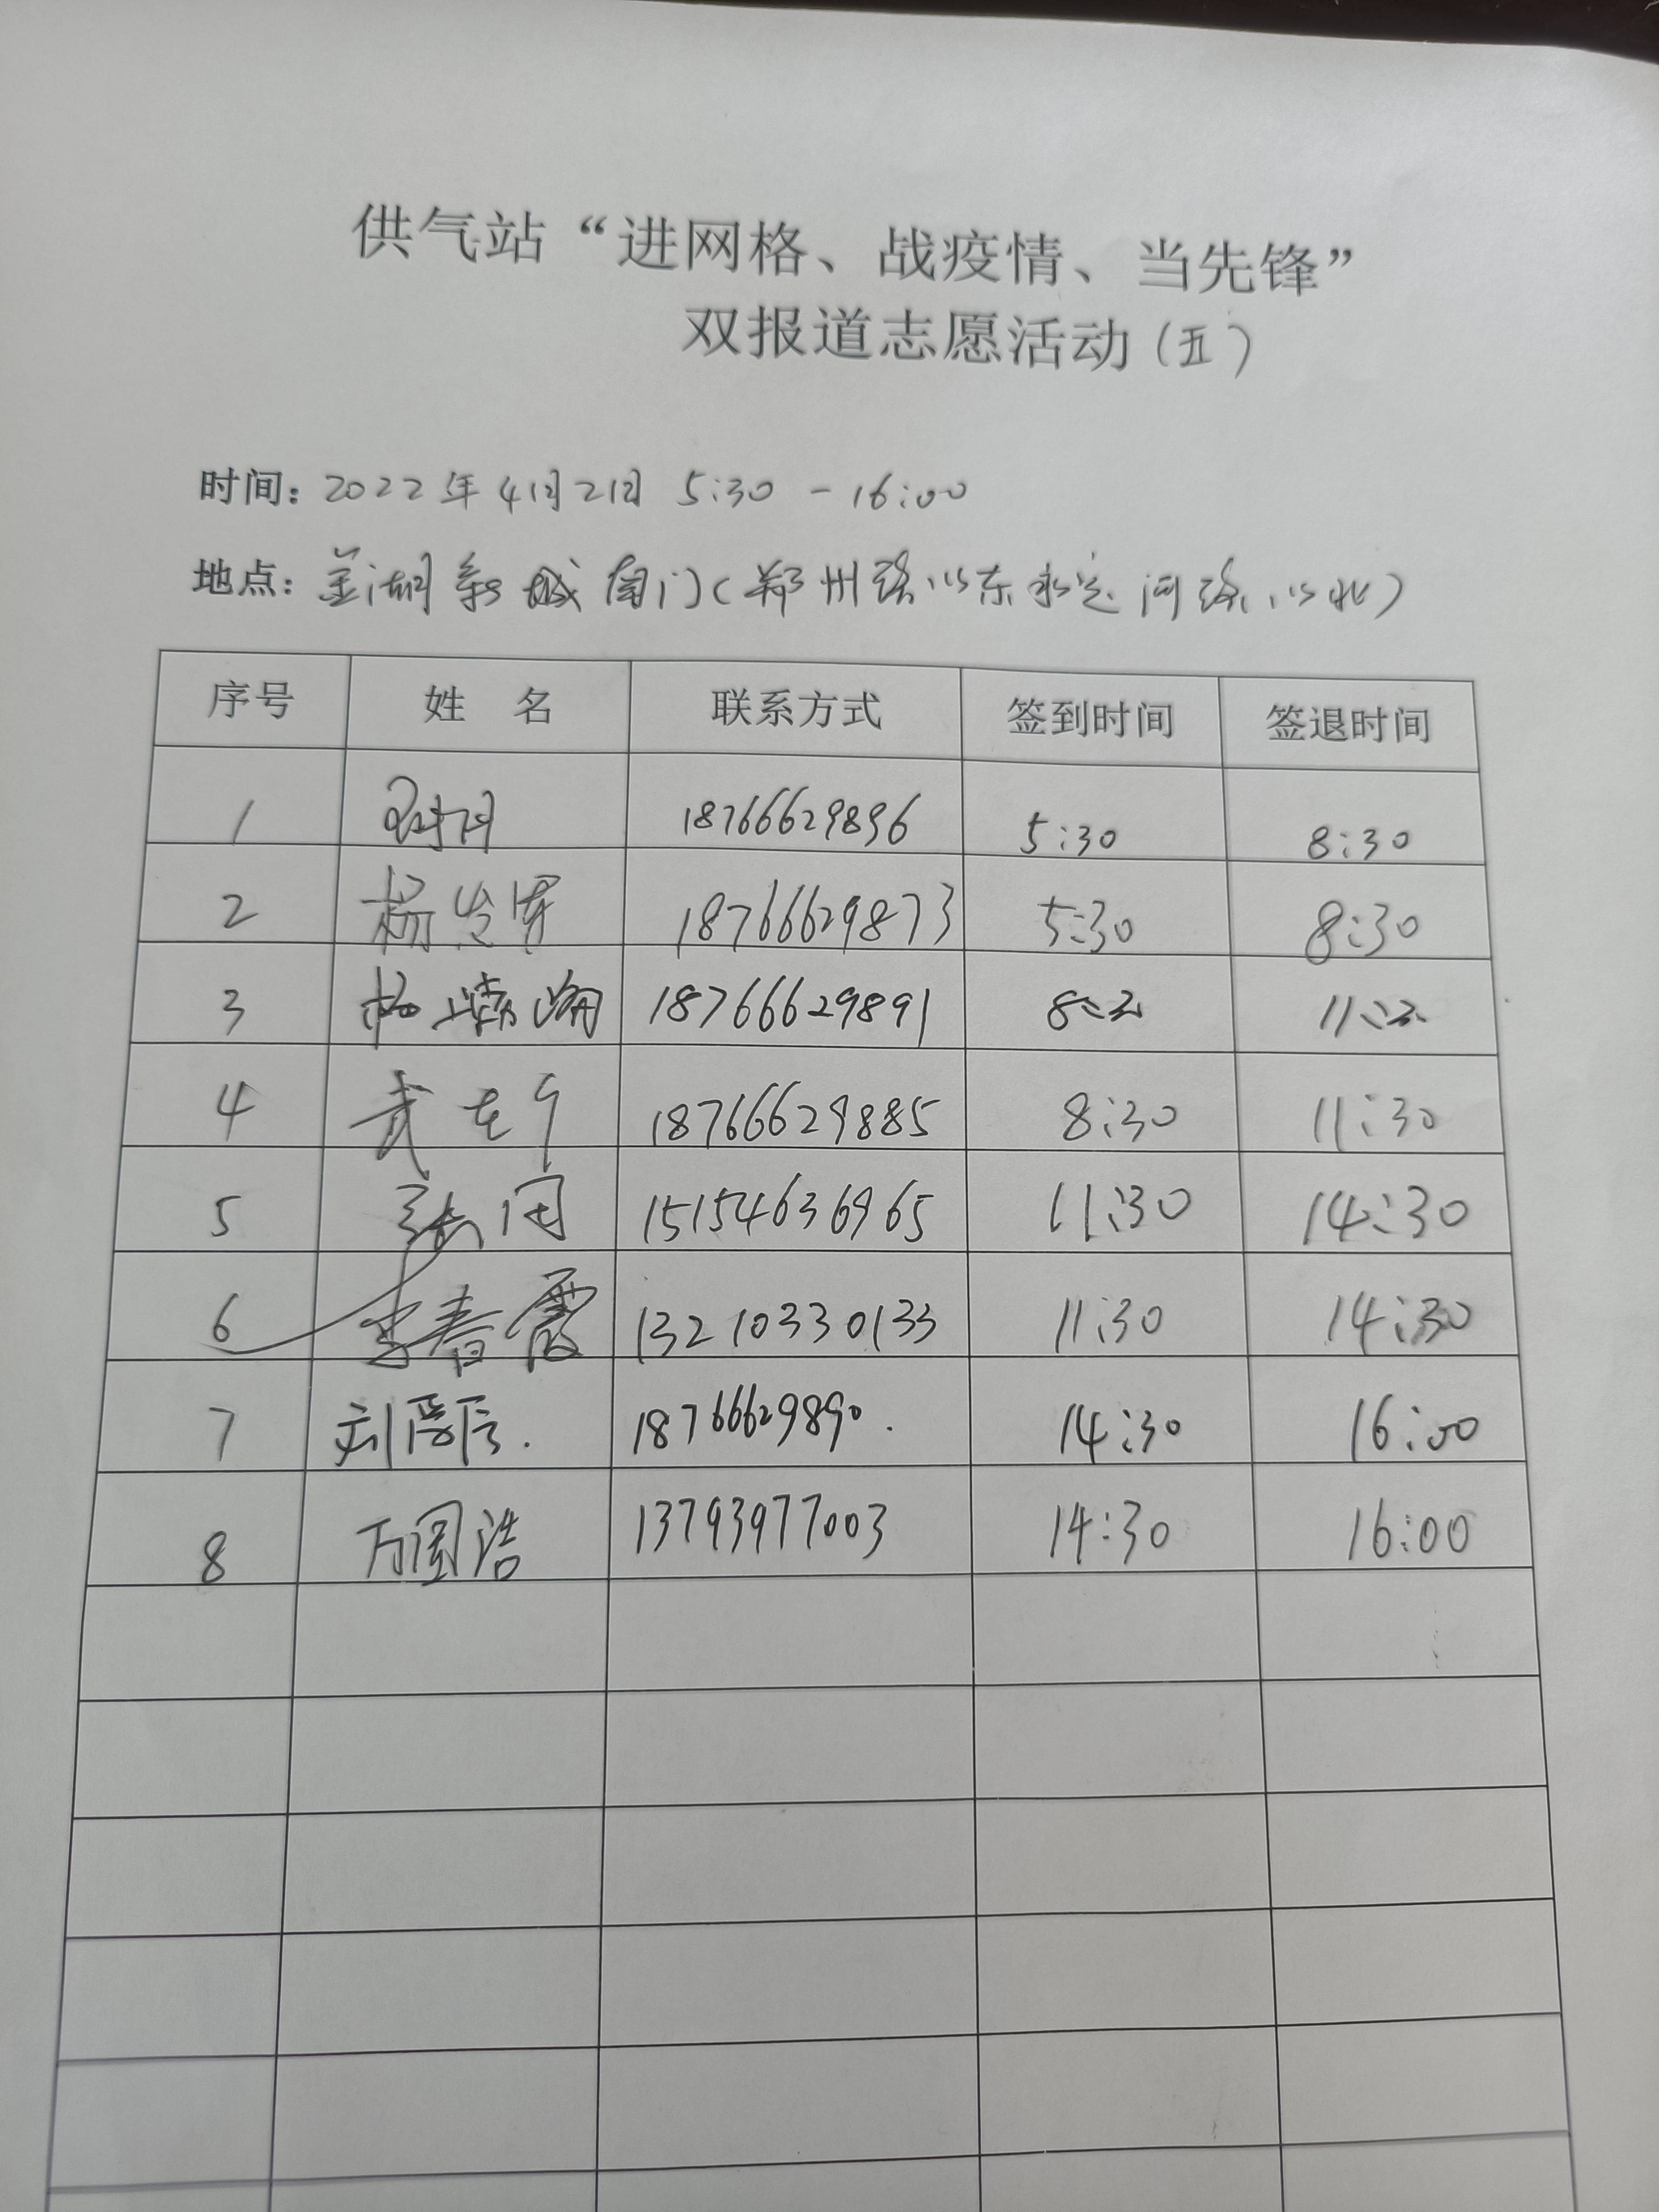 供气站“进网格、战疫情、当先锋”
双报道志愿活动(五)
时间: 2022年4月21日 5:30 - 16:00
地点: 金湖新城南门(郑州路以东永定河路以北)
序号 姓 名 联系方式 签到时间 签退时间
1 18766629896 5:30 8:30
2 杨 18766629873 5:30 8:30
3 杨 18766629891 8:30 11:30
4 武 18766629885 8:30 11:30
5 张闯 15154636965 11:30 14:30
6 李春霞 13210330133 11:30 14:30
7 刘 18766629890. 14:30 16:00
8 万国浩 13793977003 14:30 16:00